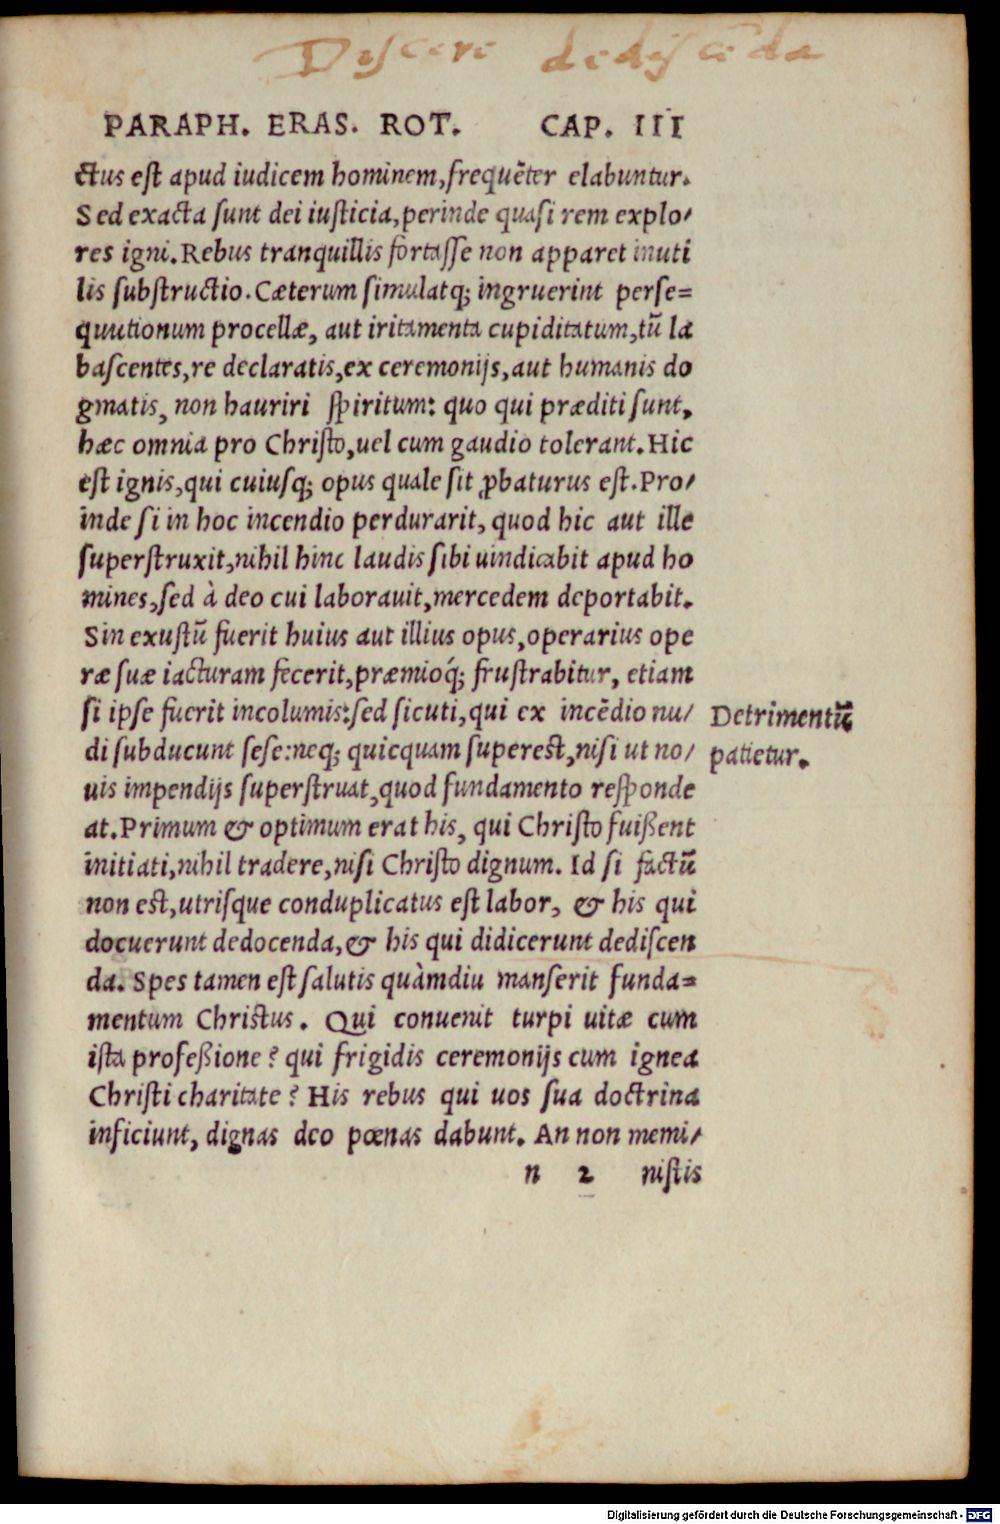 Discere dediscēda
PARAPH. ERAS. ROT. CAP. III
ctus est apud iudicem hominem, frequēter elabuntur.
Sed exacta sunt dei iusticia, perinde quasi rem explo/
res igni. Rebus tranquillis fortasse non apparet inuti
lis substructio. Cæterum simulatq; ingruerint perse=
quutionum procellæ, aut iritamenta cupiditatum, tū la
bascentes, re declaratis, ex ceremonijs, aut humanis do
gmatis, non hauriri spiritum: quo qui præditi sunt,
hæc omnia pro Christo, uel cum gaudio tolerant. Hic
est ignis, qui cuiusq; opus quale sit ꝓbaturus est. Pro/
inde si in hoc incendio perdurarit, quod hic aut ille
superstruxit, nihil hinc laudis sibi uindicabit apud ho
mines, sed à deo cui laborauit, mercedem deportabit.
Sin exustū fuerit huius aut illius opus, operarius ope
ræ suæ iacturam fecerit, præmioq́; frustrabitur, etiam
si ipse fuerit incolumis: sed sicuti, qui ex incēdio nu/
di subducunt sese: neq; quicquam superest, nisi ut no/
uis impendijs superstruat, quod fundamento responde
at. Primum & optimum erat his, qui Christo fuißent
initiati, nihil tradere, nisi Christo dignum. Id si factū
non est, utrisque conduplicatus est labor, & his qui
docuerunt dedocenda, & his qui didicerunt dediscen
da. Spes tamen est salutis quàmdiu manserit funda=
mentum Christus. Qui conuenit turpi uitæ cum
ista profeßione? qui frigidis ceremonijs cum ignea
Christi charitate? His rebus qui uos sua doctrina
inficiunt, dignas deo pœnas dabunt. An non memi/
n 2 nistis
Detrimentū
patietur.
Digitalisierung gefördert durch die Deutsche Forschungsgemeinschaft - DFG